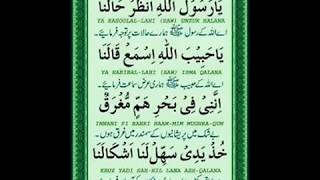 يَا رَسُوْلَ اللّٰهِ اُنْظُرْ حَالَنَا
YA RASOOLAL-LAHI (SAW) UNTUR HALANA
اے اللہ کے رسول ﷺ ہمارے حالات پر توجہ فرمائیے۔
يَا حَبِيْبَ اللّٰهِ اِسْمَعْ قَالَنَا
YA HABIBAL-LAHI (SAW) ISMA QALANA
اے اللہ کے حبیب ﷺ ہماری عرض سماعت فرمائیے۔
اِنَّنِيْ فِيْ بَحْرِ هَمٍّ مُغْرَقٌ
INNANI FI BAHRI HAAM-MIM MUGHRA-QUN
بے شک میں پریشانیوں کے سمندر میں غرق ہوں۔
خُذْ يَدِيْ سَهِّلْ لَنَا اَشْكَالَنَا
KHUZ YADI SAH-HIL LANA ASH-QALANA